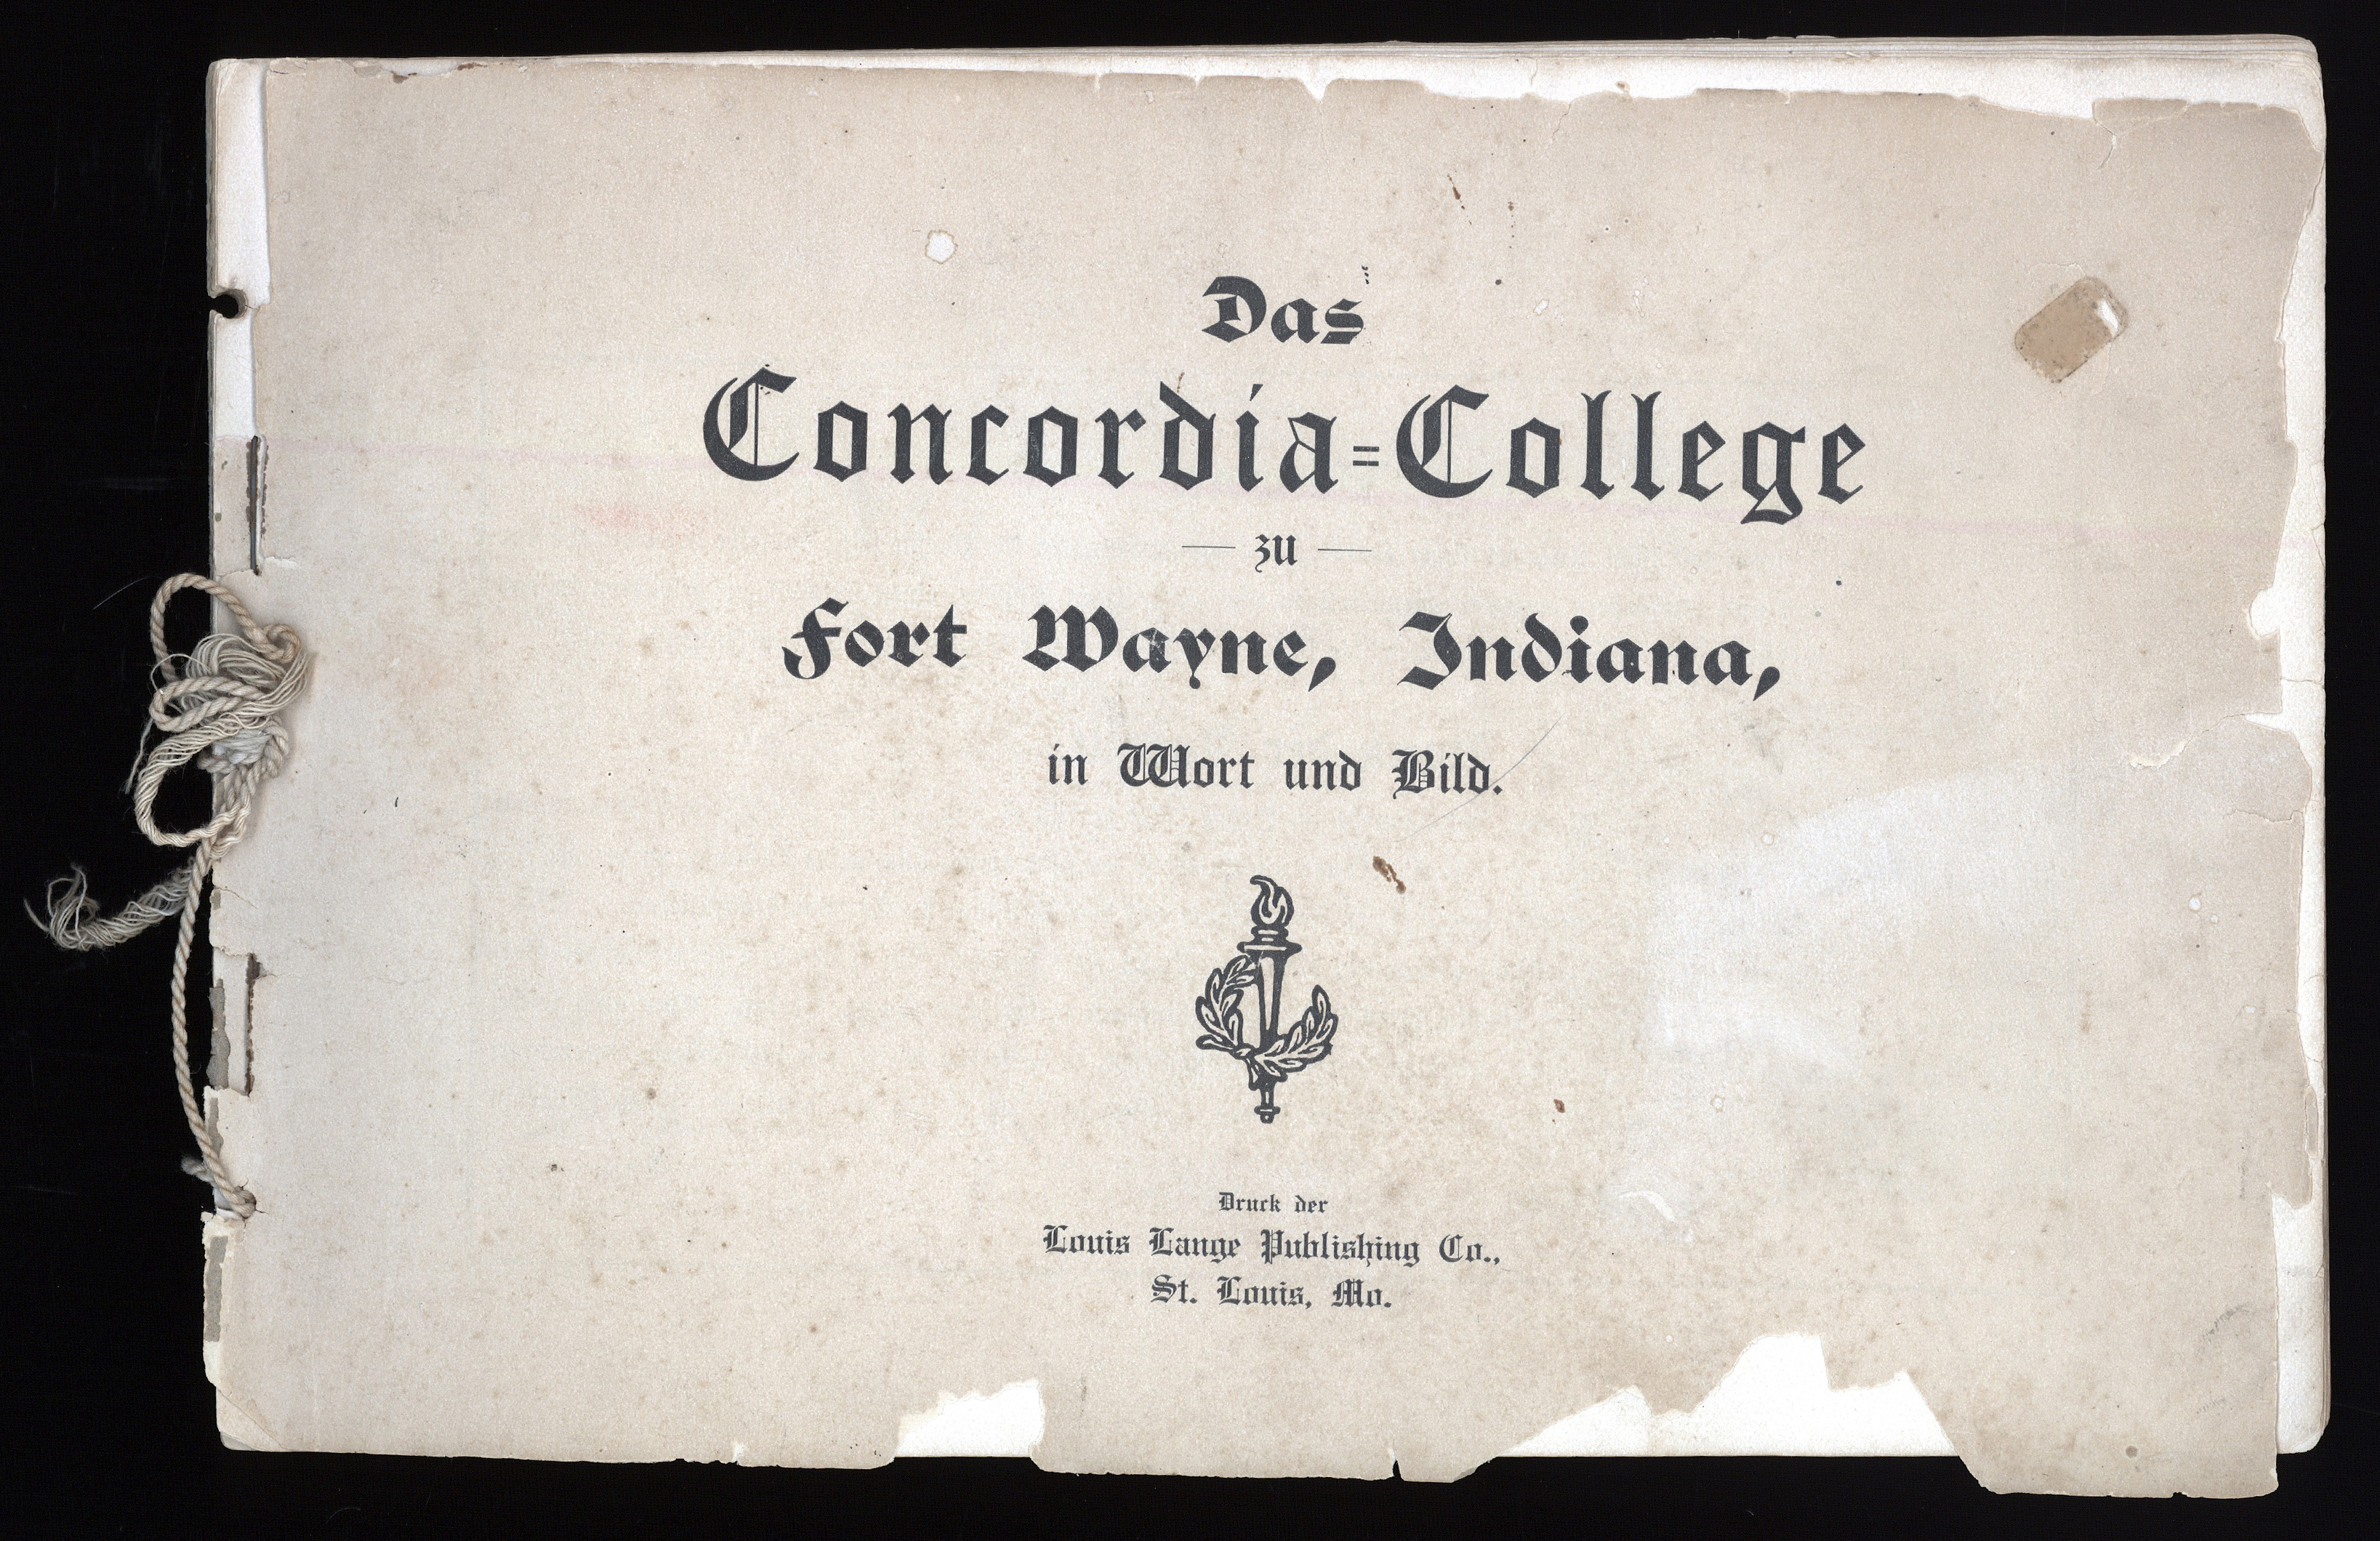 Das
Concordia=College
— zu —
Fort Wayne, Indiana,
in Wort und Bild.
Druck der
Louis Lange Publishing Co.,
St. Louis, Mo.